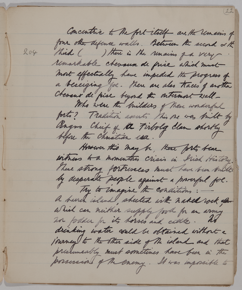 Concentric to the fort itself are the remains of
four other defence walls. Between the second & the
third ( ) there is the remains of a very
remarkable chevaux de frise which must
most effectually have impeded the progress of
a besieging foe. There are also traces of another
chevaux de frise beyond the outermost wall.
Who were the builders of these wonderful
forts? Tradition counts this one was built by
Angus Chief of the Firbolg Clan shortly
before the Christian era.
However this may be these forts bear
witness to a momentous crisis in Irish History.
These strong fortresses must have been built
by desperate people against a powerful foe.
Try to imagine the conditions:—
A barren island, sheeted with naked rock, 
which can neither supply food for an army
nor fodder for its horses and cattle. No
drinking water could be obtained without a
journey to the other side of the island and that
presumably must sometimes have been in the
possession of the enemy. It was impossible to